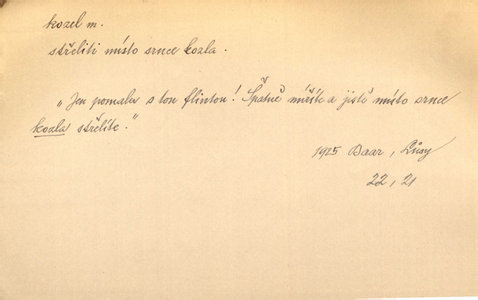 kozel m.
střeliti místo srnce kozla.
„Jen pomalu s tou flintou! Špatně míříte a jistě místo srnce
kozla střelíte."
1925 Baar, Lůsy
22, 21